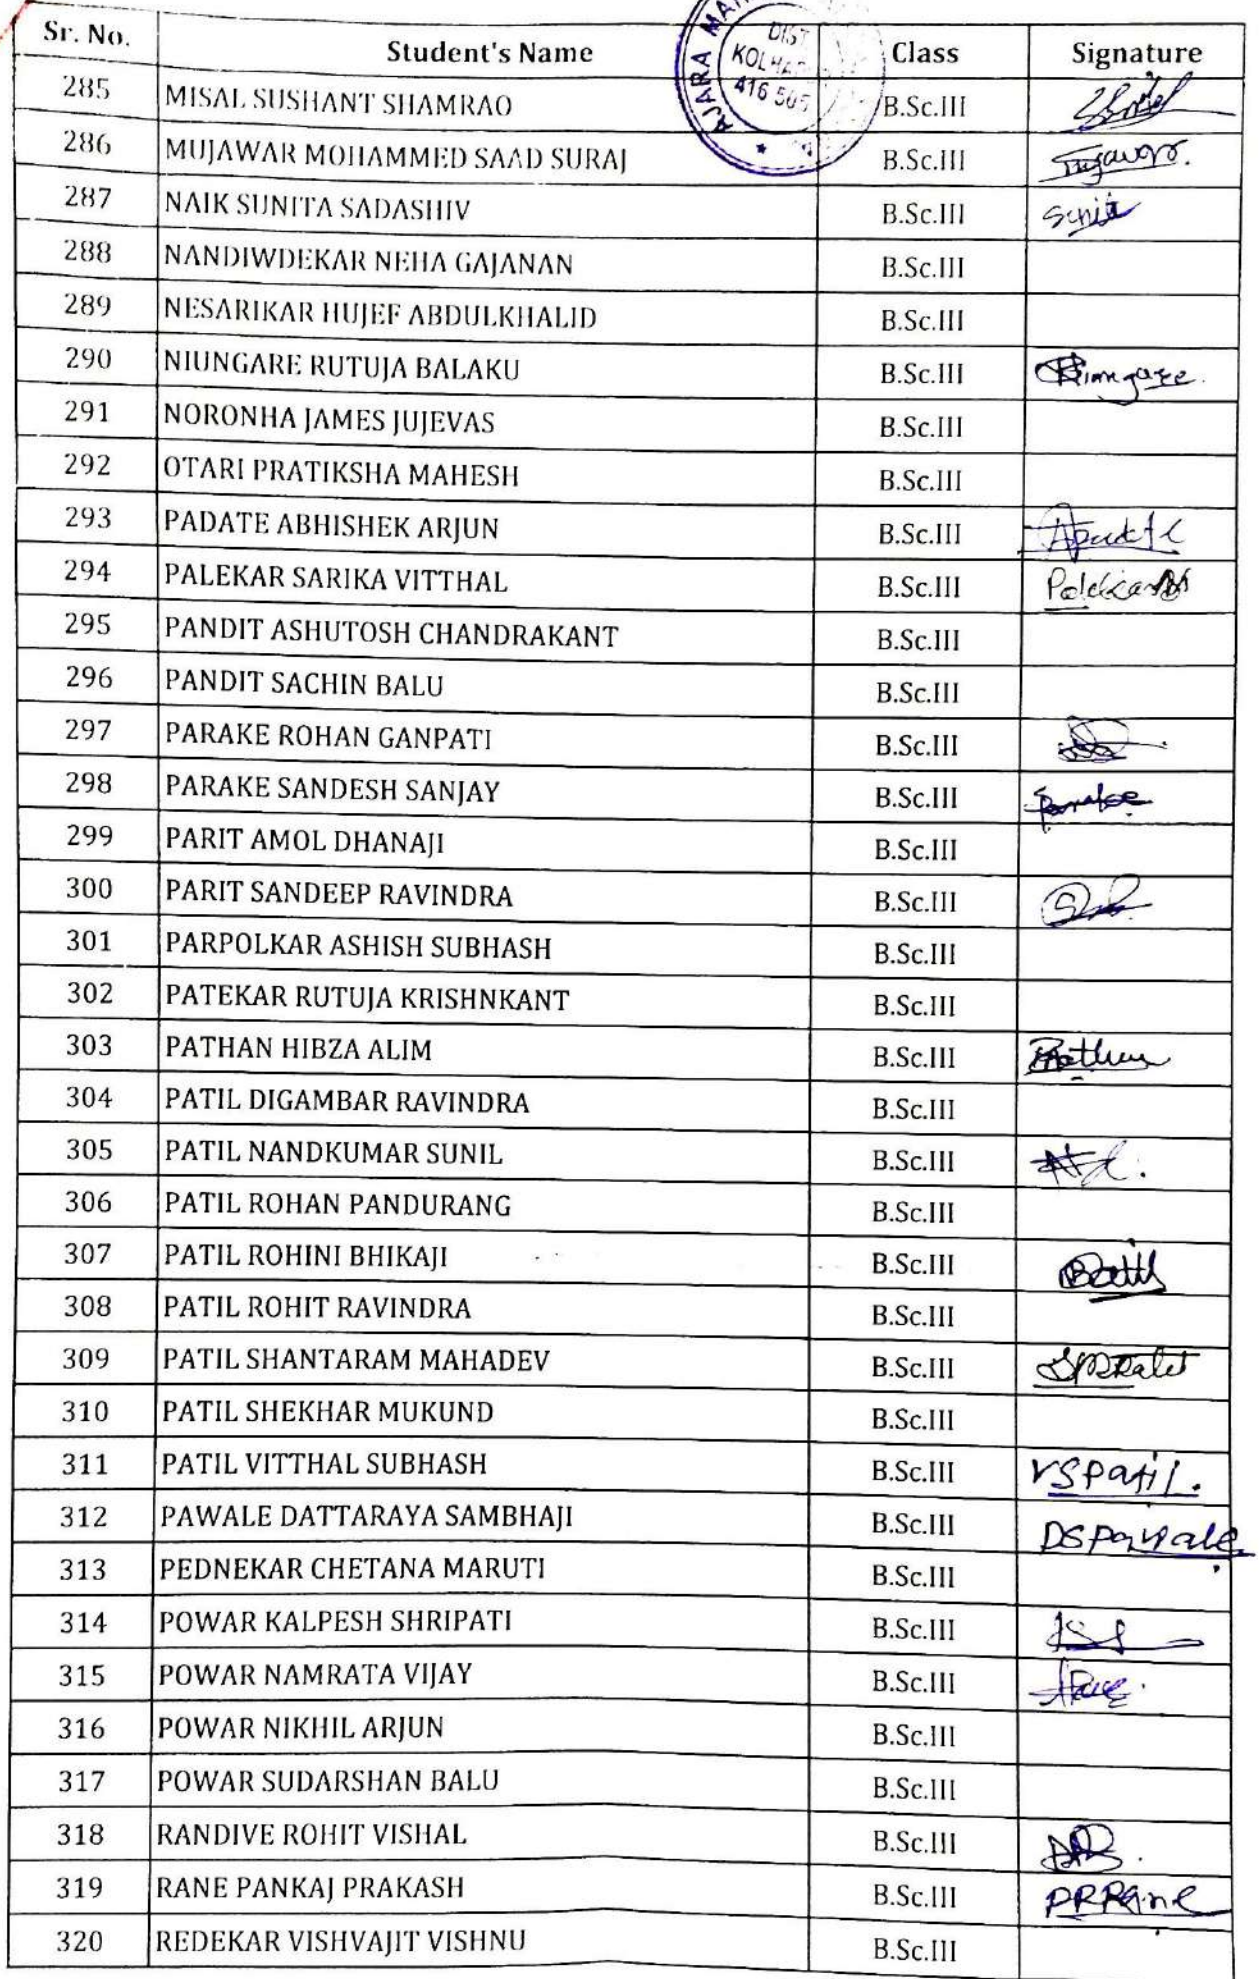 AJARA MA
DIST
KOLHA
416 505
Sr. No. Student's Name Class Signature
285 MISAL SUSHANT SHAMRAO B.Sc.III
286 MUJAWAR MOHAMMED SAAD SURAJ B.Sc.III Mujawar.
287 NAIK SUNITA SADASHIV B.Sc.III Sunita
288 NANDIWDEKAR NEHA GAJANAN B.Sc.III
289 NESARIKAR HUJEF ABDULKHALID B.Sc.III
290 NIUNGARE RUTUJA BALAKU B.Sc.III
291 NORONHA JAMES JUJEVAS B.Sc.III
292 OTARI PRATIKSHA MAHESH B.Sc.III
293 PADATE ABHISHEK ARJUN B.Sc.III
294 PALEKAR SARIKA VITTHAL B.Sc.III
295 PANDIT ASHUTOSH CHANDRAKANT B.Sc.III
296 PANDIT SACHIN BALU B.Sc.III
297 PARAKE ROHAN GANPATI B.Sc.III
298 PARAKE SANDESH SANJAY B.Sc.III
299 PARIT AMOL DHANAJI B.Sc.III
300 PARIT SANDEEP RAVINDRA B.Sc.III
301 PARPOLKAR ASHISH SUBHASH B.Sc.III
302 PATEKAR RUTUJA KRISHNKANT B.Sc.III
303 PATHAN HIBZA ALIM B.Sc.III
304 PATIL DIGAMBAR RAVINDRA B.Sc.III
305 PATIL NANDKUMAR SUNIL B.Sc.III
306 PATIL ROHAN PANDURANG B.Sc.III
307 PATIL ROHINI BHIKAJI B.Sc.III
308 PATIL ROHIT RAVINDRA B.Sc.III
309 PATIL SHANTARAM MAHADEV B.Sc.III
310 PATIL SHEKHAR MUKUND B.Sc.III
311 PATIL VITTHAL SUBHASH B.Sc.III VSPatil.
312 PAWALE DATTARAYA SAMBHAJI B.Sc.III DSPawale
313 PEDNEKAR CHETANA MARUTI B.Sc.III
314 POWAR KALPESH SHRIPATI B.Sc.III
315 POWAR NAMRATA VIJAY B.Sc.III
316 POWAR NIKHIL ARJUN B.Sc.III
317 POWAR SUDARSHAN BALU B.Sc.III
318 RANDIVE ROHIT VISHAL B.Sc.III
319 RANE PANKAJ PRAKASH B.Sc.III PRRane
320 REDEKAR VISHVAJIT VISHNU B.Sc.III